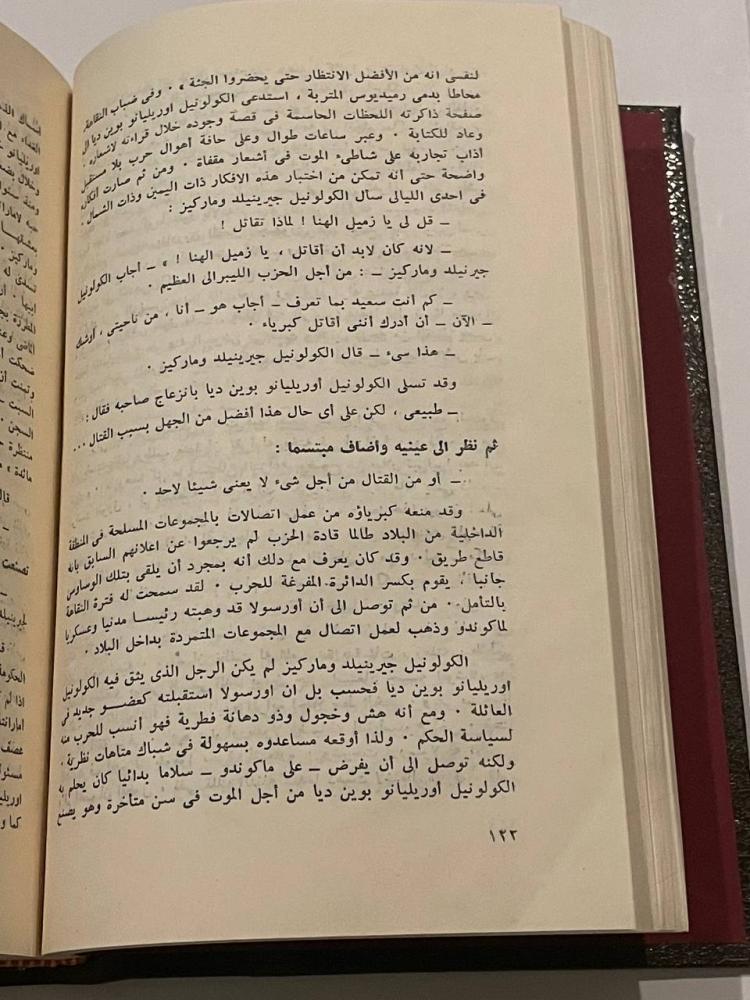 لنفسى انه من الأفضل الانتظار حتى يحضروا الجثة » ٠ وفى ضباب النقاهة
محاطا بدمى رميديوس المتربة ، استدعى الكولونيل اوريليانو بوين ديا الى
صفحة ذاكرته اللحظات الحاسمة فى قصة وجوده خلال قراءته لأشعاره ٠
وعاد للكتابة ٠ وعبر ساعات طوال وعلى حافة أهوال حرب بلا مستقبل
أذاب تجاربه على شاطىء الموت فى أشعار مقفاة ٠ ومن ثم صارت أفكاره
واضحة حتى أنه تمكن من اختبار هذه الافكار ذات اليمين وذات الشمال ٠
فى احدى الليالى سأل الكولونيل جيرينيلد وماركيز :
ــ قل لى يا زميل الهنا ! لماذا تقاتل !
ــ لانه كان لابد أن أقاتل ، يا زميل الهنا ! » ــ أجاب الكولونيل
جيرنيلد وماركيز ــ : من أجل الحزب الليبرالى العظيم ٠
ــ كم أنت سعيد بما تعرف ــ أجاب هو ــ أنا ، من ناحيتى ، أوشك
ــ الآن ــ أن أدرك أننى أقاتل كبرياء ٠
ــ هذا سىء ــ قال الكولونيل جيرينيلد وماركيز ٠
وقد تسلى الكولونيل أوريليانو بوين ديا بانزعاج صاحبه فقال :
ــ طبيعى ، لكن على أى حال هذا أفضل من الجهل بسبب القتال ...
ثم نظر الى عينيه وأضاف مبتسما :
ــ أو من القتال من أجل شىء لا يعنى شيئا لاحد ٠
وقد منعه كبرياؤه من عمل اتصالات بالمجموعات المسلحة فى المنطقة
الداخلية من البلاد طالما قادة الحزب لم يرجعوا عن اعلانهم السابق بأنه
قاطع طريق ٠ وقد كان يعرف مع دلك أنه بمجرد أن يلقى بتلك الوساوس
جانبا ، يقوم بكسر الدائرة المفرغة للحرب ٠ لقد سمحت له فترة النقاهة
بالتأمل ٠ من ثم توصل الى أن أورسولا قد وهبته رئيسا مدنيا وعسكريا
لماكوندو وذهب لعمل اتصال مع المجموعات المتمردة بداخل البلاد ٠
الكولونيل جيرينيلد وماركيز لم يكن الرجل الذى يثق فيه الكولونيل
اوريليانو بوين ديا فحسب بل ان اورسولا استقبلته كعضو جديد فى
العائلة ٠ ومع أنه هش وخجول وذو دهانة فطرية فهو أنسب للحرب منه
لسياسة الحكم ٠ ولذا أوقعه مساعدوه بسهولة فى شباك متاهات نظرية ٠
ولكنه توصل الى أن يفرض ــ على ماكوندو ــ سلاما بدائيا كان يحلم به
الكولونيل أوريليانو بوين ديا من أجل الموت فى سن متأخرة وهو يصنع
١٢٢